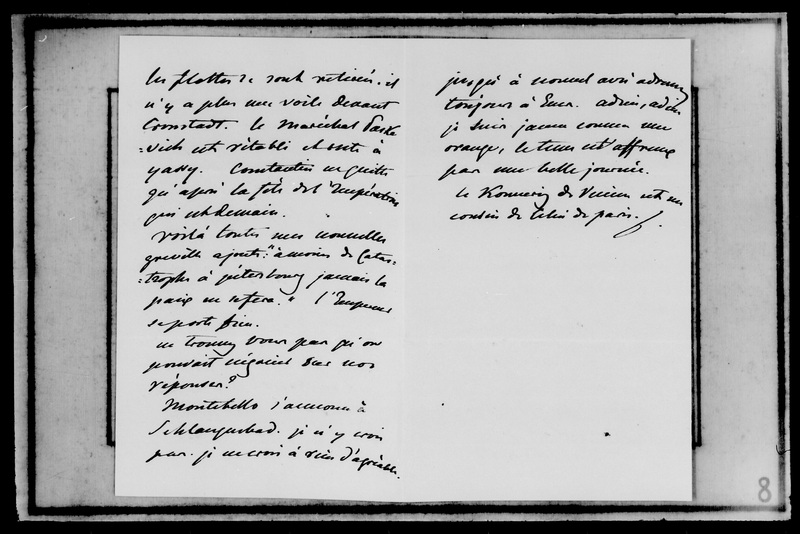 les flottes se sont retirées. il
n'y a plus une voile devant
Cronstadt. le Maréchal Paske
=vich est rétabli et resté à
yassy. Constantin ne quitte
qu'après la fête de l'Impératrice
qui est demain.
voilà toutes mes nouvelles
greville ajoute: "à moins de Catas=
=trophe à pétersbourg jamais la
paix ne se fera." l'Empereur
se porte bien.
ne trouvez vous pas qu'on
pouvait négocier sur nos
réponses?
Montebello s'annonce à
Schlangenbad. je n'y crois
pas. je ne crois à rien d'agréable.
jusqu'à nouvel avis adressez
toujours à Ems. adieu, adieu
je suis jaune comme une
orange, le tems est affreux
par une belle journée.
le de est un
cousin de celui de paris.
8